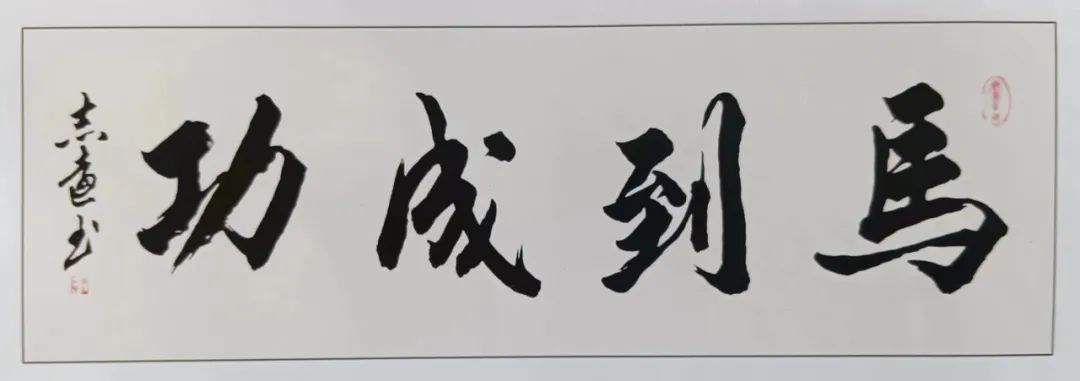 馬到成功
志遠书